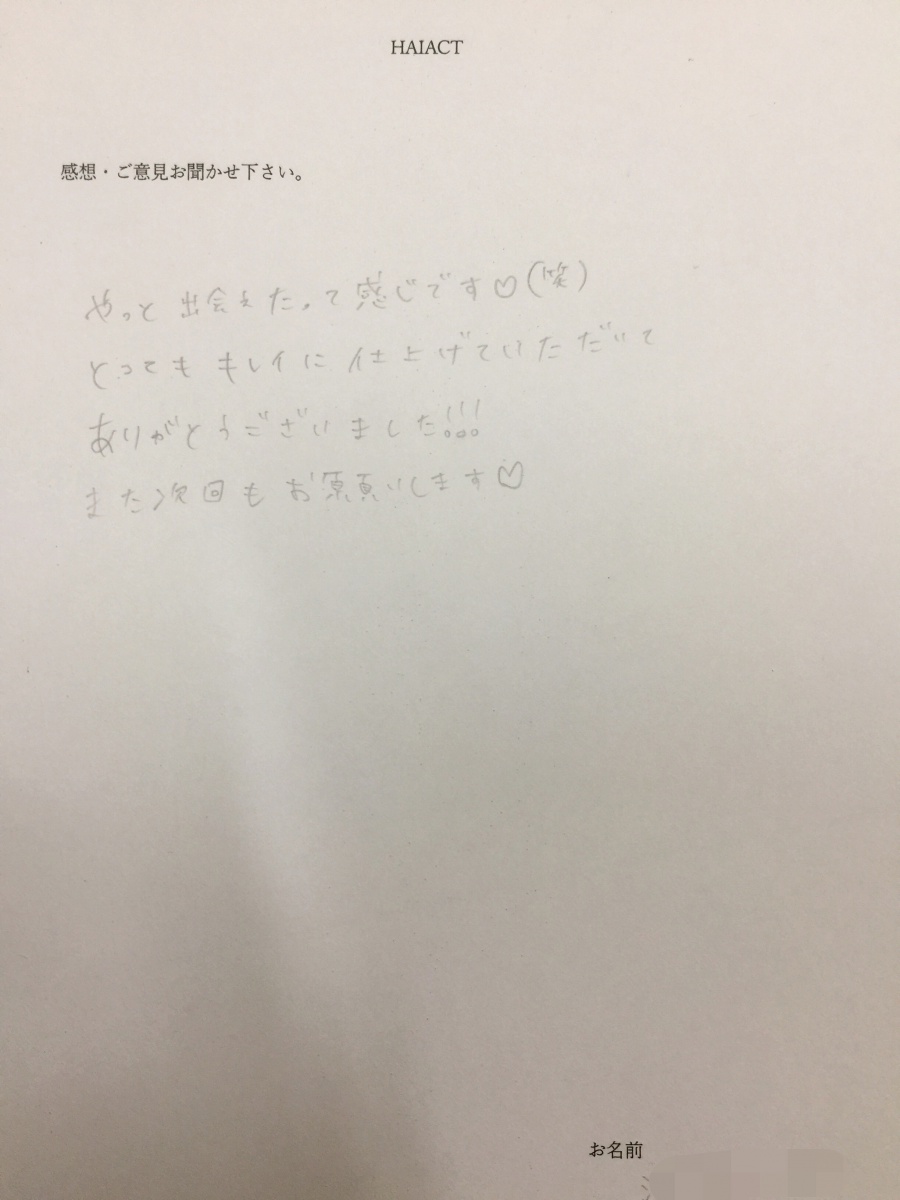 HAIACT
感想・ご意見お聞かせ下さい。
やっと出会えたって感じです♡(笑)
とってもキレイに仕上げていただいて
ありがとうございました!!!
また次回もお願いします♡
お名前